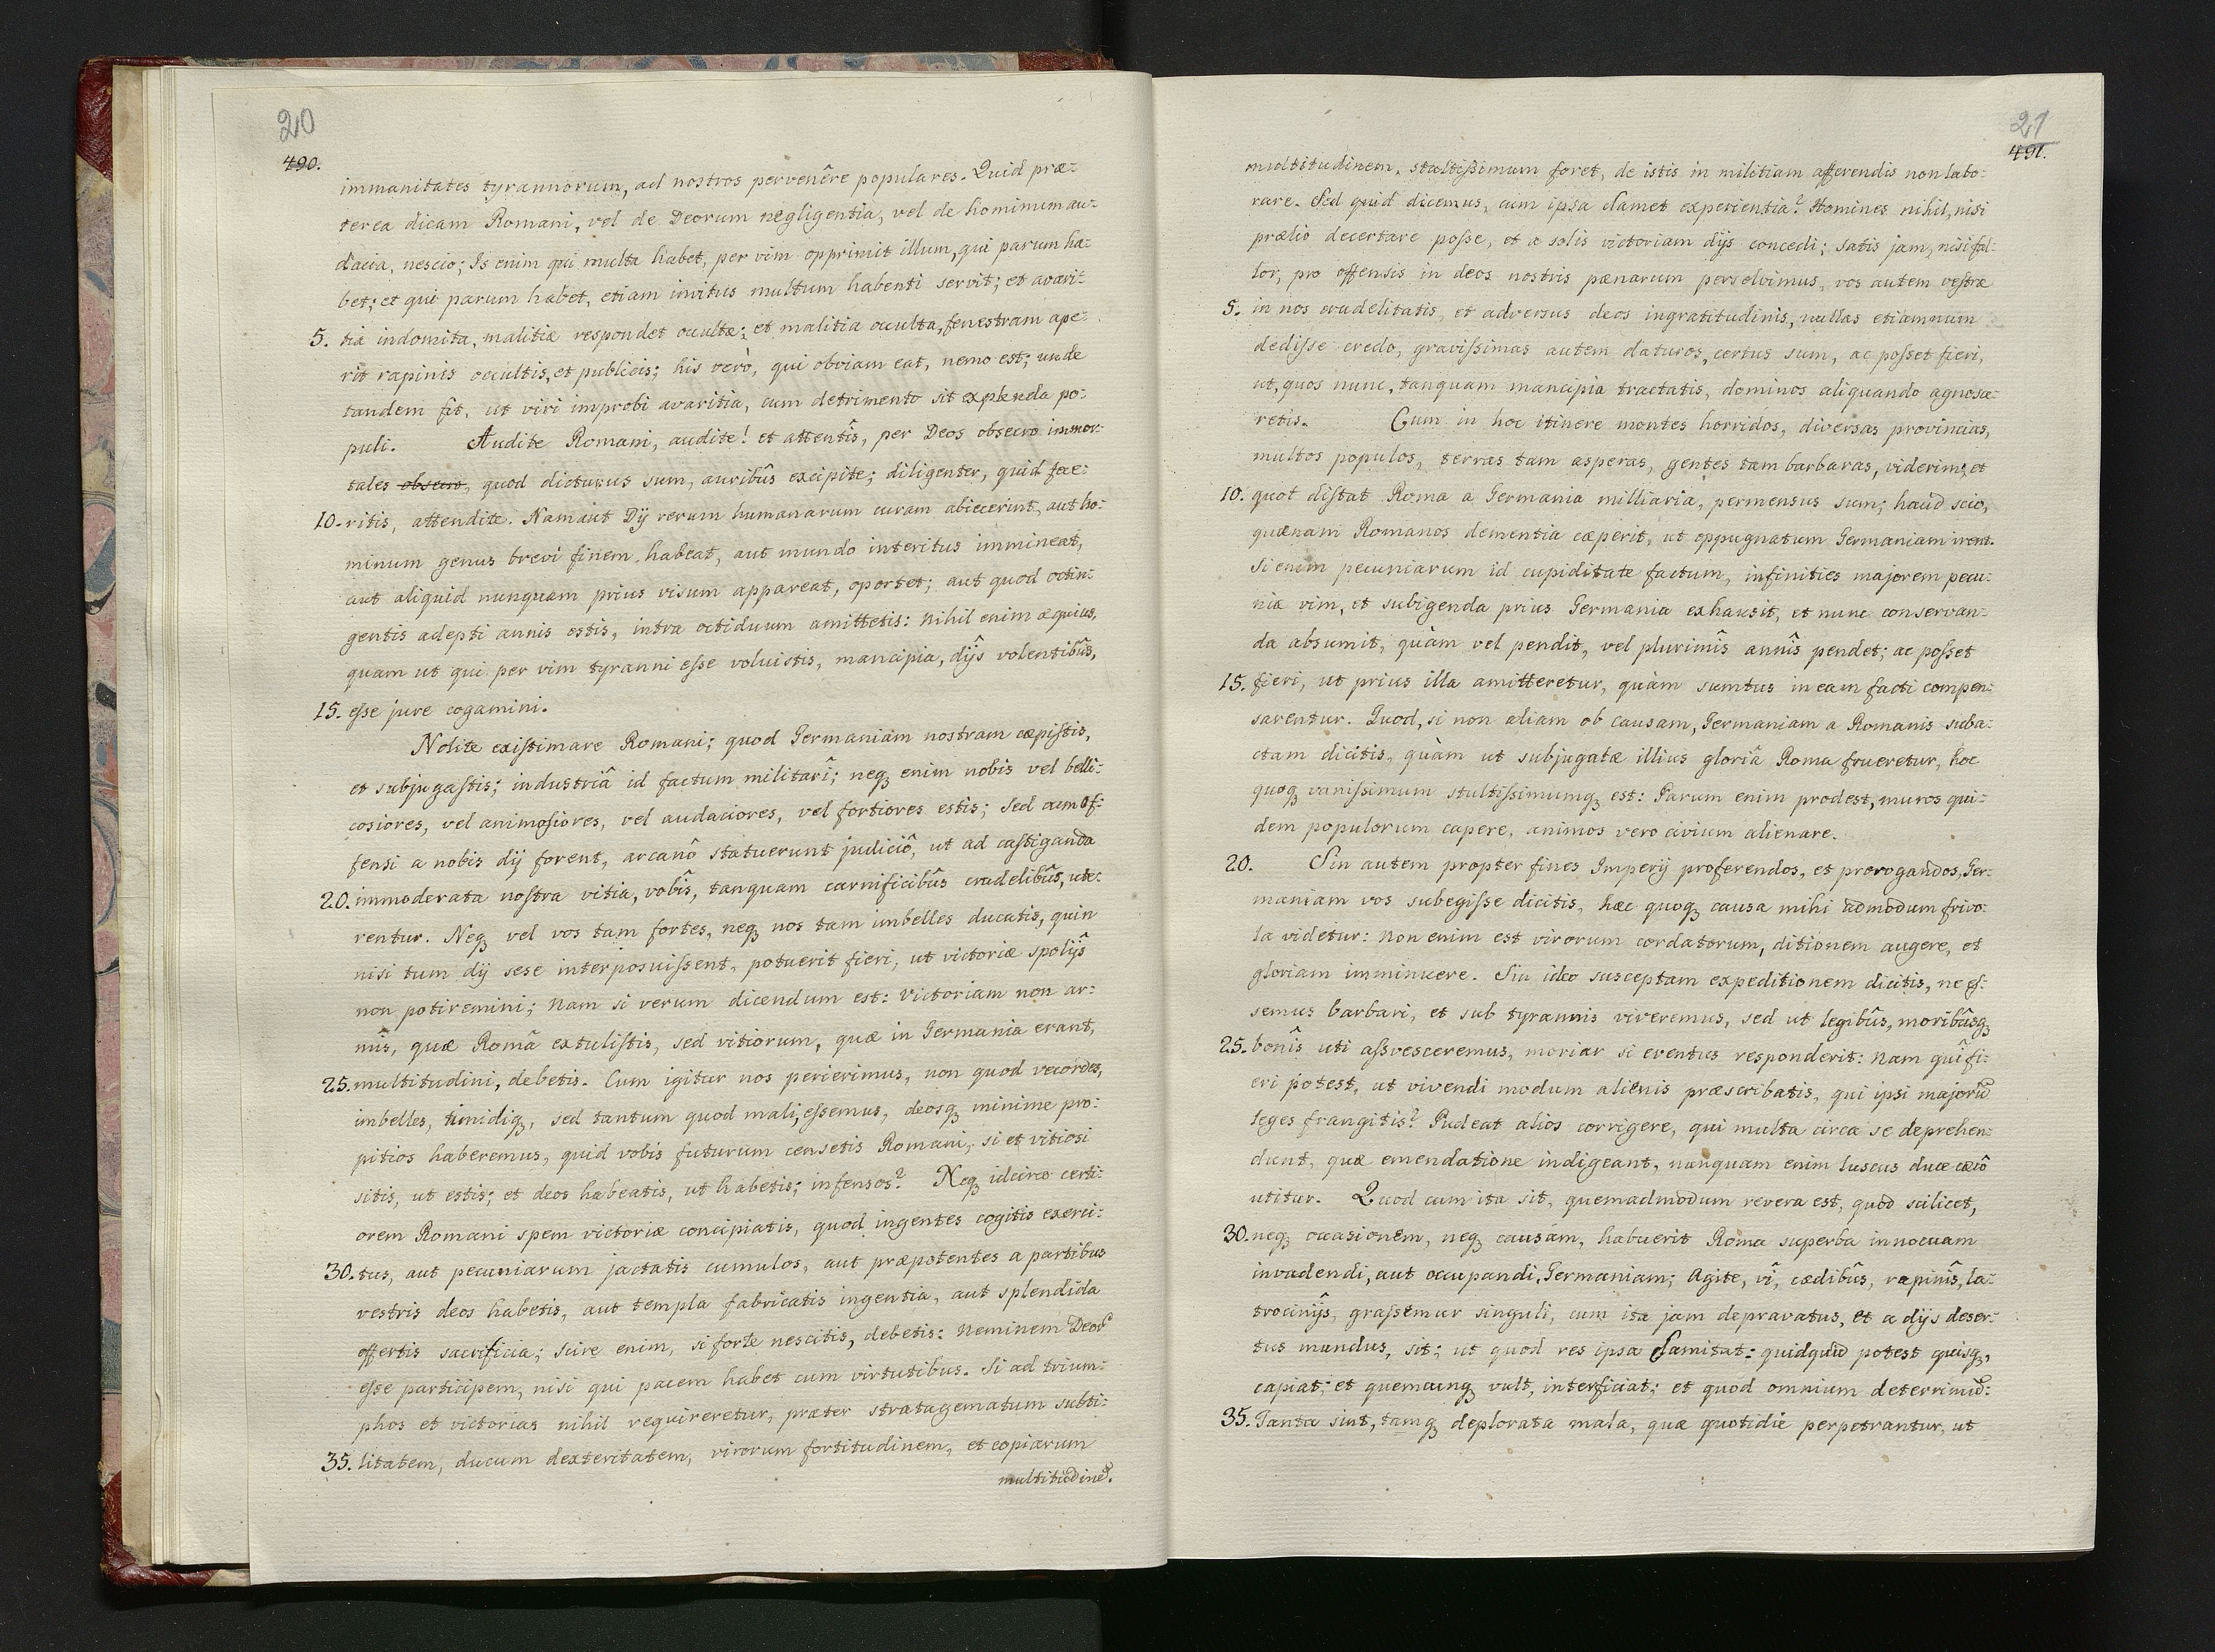 20
490.
immanitates tyrannorum, ad nostros pervenêre populares. Quid præ-
terea dicam Romani, vel de Deorum negligentia, vel de hominum au-
dacia, nescio; Is enim qui multa habet, per vim opprimit illum, qui parum ha-
bet; et qui parum habet, etiam invitus multum habenti servit; et avari-
5. tia indomita, malitiæ respondet occultæ; et malitia occulta, fenestram ape-
rit rapinis occultis, et publicis; his verò, qui obviam eat, nemo est; unde
tandem fit, ut viri improbi avaritia, cum detrimento sit explenda po-
puli. Audite Romani, audite! et attentîs, per Deos obsecro immor-
tales obsecro, quod dicturus sum, auribûs excipite; diligenter, quid fae-
10. ritis, attendite. Nam aut Dij rerum humanarum curam abiecerint, aut ho-
minum genus brevi finem habeat, aut mundo interitus immineat,
aut aliquid nunquam prius visum appareat, oportet; aut quod octin-
gentis adepti annis estis, intra octiduum amittetis: Nihil enim æquius,
quam ut qui per vim tyranni esse voluistis, mancipia, dijs volentibûs,
15. esse jure cogamini.
Nolite existimare Romani; quod Germaniam nostram cœpistis,
et subjugastis; industriâ id factum militari; neq enim nobis vel belli-
cosiores, vel animosiores, vel audaciores, vel fortiores estis; Sed cum of-
fensi a nobis dij forent, arcanô statuerunt judiciô, ut ad castiganda
20. immoderata nostra vitia, vobîs, tanquam carnificibûs crudelibûs, ute-
rentur. Neq vel vos tam fortes, neq nos tam imbelles ducatis, quin
nisi tum dij sese interposuissent, potuerit fieri, ut victoriæ spolijs
non potiremini; Nam si verum dicendum est: Victoriam non ar-
mîs, quæ Româ extulistis, sed vitiorum, quæ in Germania erant,
25. multitudini, debetis. Cum igitur nos perierimus, non quod vecordes,
imbelles, timidiq, sed tantum quod mali, essemus, deosq minime pro-
pitios haberemus, quid vobis futurum censetis Romani, si et vitiosi
sitis, ut estis; et deos habeatis, ut habetis; infensos? Neq idcirco certi-
orem Romani spem victoriæ concipiatis, quod ingentes cogitis exerci-
30. tus, aut pecuniarum jactatis cumulos, aut præpotentes a partibus
vestris deos habetis, aut templa fabricatis ingentia, aut splendida
offertis sacrificia; Scire enim, si forte nescitis, debetis: Neminem Deor̃
esse participem, nisi qui pacem habet cum virtutibus. Si ad trium-
phos et victorias nihil requireretur, præter stratagematum subti-
35. litatem, ducum dexteritatem, virorum fortitudinem, et copiarum
multitudinẽ.
21
491.
multitudinem, stultissimum foret, de istis in militiam afferendis non labo-
rare. Sed quid dicemus, cum ipsa clamet experientia? Homines nihil, nisi
prælio decertare posse, et a solis victoriam dijs concedi; satis jam, nisi fal-
lor, pro offensis in deos nostris pænarum persolvimus, vos autem vestræ
5. in nos crudelitatis, et adversus deos ingratitudinis, nullas etiamnum
dedisse credo, gravissimas autem daturos, certus sum, ac posset fieri,
ut, quos nunc, tanquam mancipia tractatis, dominos aliquando agnosce-
retis. Cum in hoc itinere montes horridos, diversas provincias,
multos populos, terras tam asperas, gentes tam barbaras, viderim, et
10. quot distat Roma a Germania milliaria, permensus sum; haud scio,
quænam Romanos dementia cæperit, ut oppugnatum Germaniam irent.
Si enim pecuniarum id cupiditate factum, infinities majorem pecu-
niæ vim, et subigenda prius Germania exhausit, et nunc conservan-
da absumit, quàm vel pendit, vel plurimîs annîs pendet; ac posset
15. fieri, ut prius illa amitteretur, quàm sumtus in eam facti compen-
sarentur. Quod, si non aliam ob causam, Germaniam a Romanis suba-
ctam dicitis, quàm ut subjugatæ illius gloriâ Roma frueretur, hoc
quoq vanissimum stultissimumq est: Parum enim prodest, muros qui-
dem populorum capere, animos vero civium alienare.
20. Sin autem propter fines Imperij proferendos, et prorogandos, Ger-
maniam vos subegisse dicitis, hæc quoq causa mihi admodum frivo-
la videtur: Non enim est virorum cordatorum, ditionem augere, et
gloriam imminuere. Sin ideo susceptam expeditionem dicitis, ne es-
semus barbari, et sub tyrannis viveremus, sed ut legibûs, moribûsq
25. bonîs uti assvesceremus, moriar si eventus responderit: Nam quî fi-
eri potest, ut vivendi modum alienis præscribatis, qui ipsi majorũ
leges frangitis? Pudeat alios corrigere, qui multa circa se deprehen-
dunt, quæ emendatione indigeant, nunquam enim luscus duce cæcô
utitur. Quod cum ita sit, quemadmodum revera est, quod scilicet,
30. neq occasionem, neq causam, habuerit Roma superba innocuam
invadendi, aut occupandi, Germaniam; Agite, vî, cædibûs, rapinîs, la-
trocinijs, grassemur singuli, cum ita jam depravatus, et a dijs deser-
tus mundus, sit; ut quod res ipsa clamitat: quidquid potest quisq,
capiat; et quemcunq vult, interficiat; et quod omnium deterrimũ:
35. Tanta sint, tamq deplorata mala, quæ quotidie perpetrantur, ut